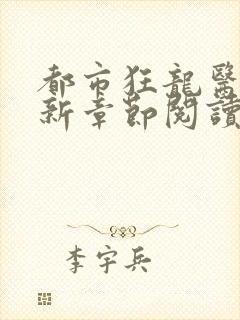 都市狂龍醫
新章節閱讀
李宇兵